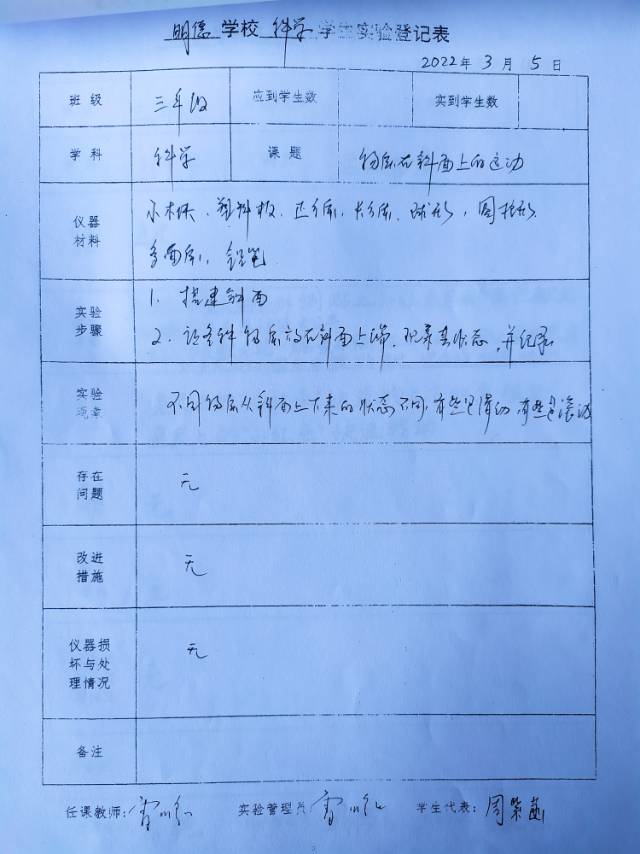 明德 学校 科学 学生实验登记表
2022年 3 月 5 日
班 级 三年级 应到学生数 实到学生数
学 科 科学 课 题 物体在斜面上的运动
仪器材料 小木块、塑料板、正方体、长方体、球形、圆柱形
多面体、铅笔
实验步骤 1. 搭建斜面
2. 让各种物体放在斜面上端,观察其状态,并纪录
实验现象 不同物体从斜面上下来的状态不同,有些是滑动,有些是滚动
存在问题 无
改进措施 无
仪器损坏与处理情况 无
备注
任课教师: 实验管理员 学生代表: 周